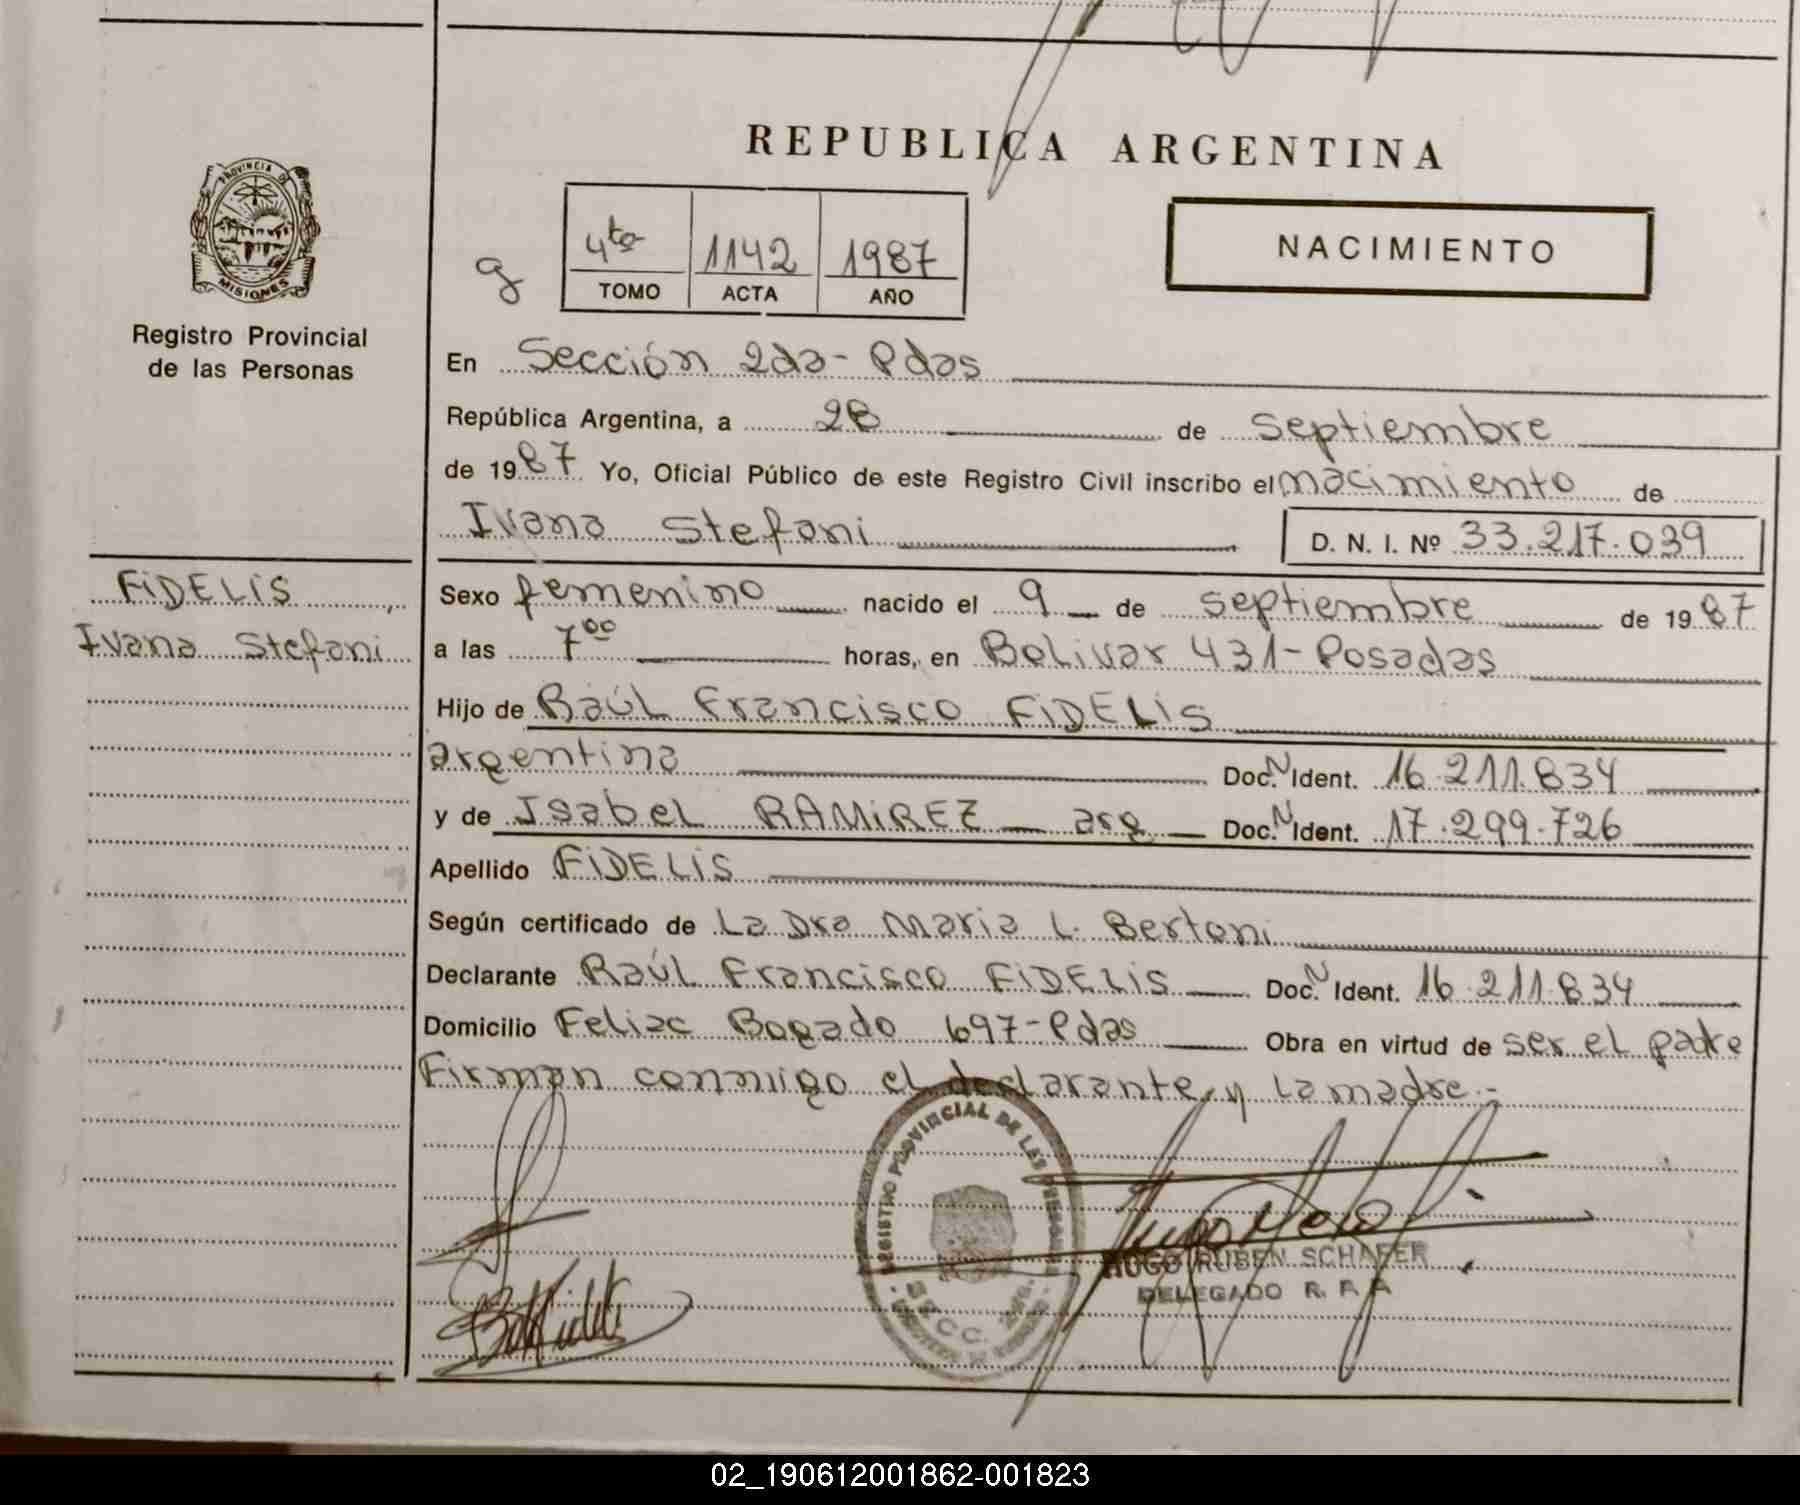 REPUBLICA ARGENTINA
PROVINCIA DE
MISIONES
Registro Provincial
de las Personas
g
4to 1142 1987
TOMO ACTA AÑO
NACIMIENTO
En Sección 2da - Pdas
República Argentina, a 28 de septiembre
de 1987 Yo, Oficial Público de este Registro Civil inscribo el nacimiento de
Ivana Stefani D. N. I. Nº 33.217.039
FIDELIS,
Ivana Stefani
Sexo femenino nacido el 9 de septiembre de 1987
a las 7 00 horas, en Bolivar 431 - Posadas
Hijo de Raúl Francisco FIDELIS
argentina Doc. N Ident. 16.211.834
y de Isabel RAMIREZ arg Doc. N Ident. 17.299.726
Apellido FIDELIS
Según certificado de La Dra Maria L. Bertoni
Declarante Raúl Francisco FIDELIS Doc. N Ident. 16.211.834
Domicilio Feliac Bogado 697 - Pdas Obra en virtud de ser el padre
Firman conmigo el declarante y la madre.-
REGISTRO PROVINCIAL DE LAS PERSONAS
HUGO RUBEN SCHAFER
DELEGADO R. P. P.
02_190612001862-001823